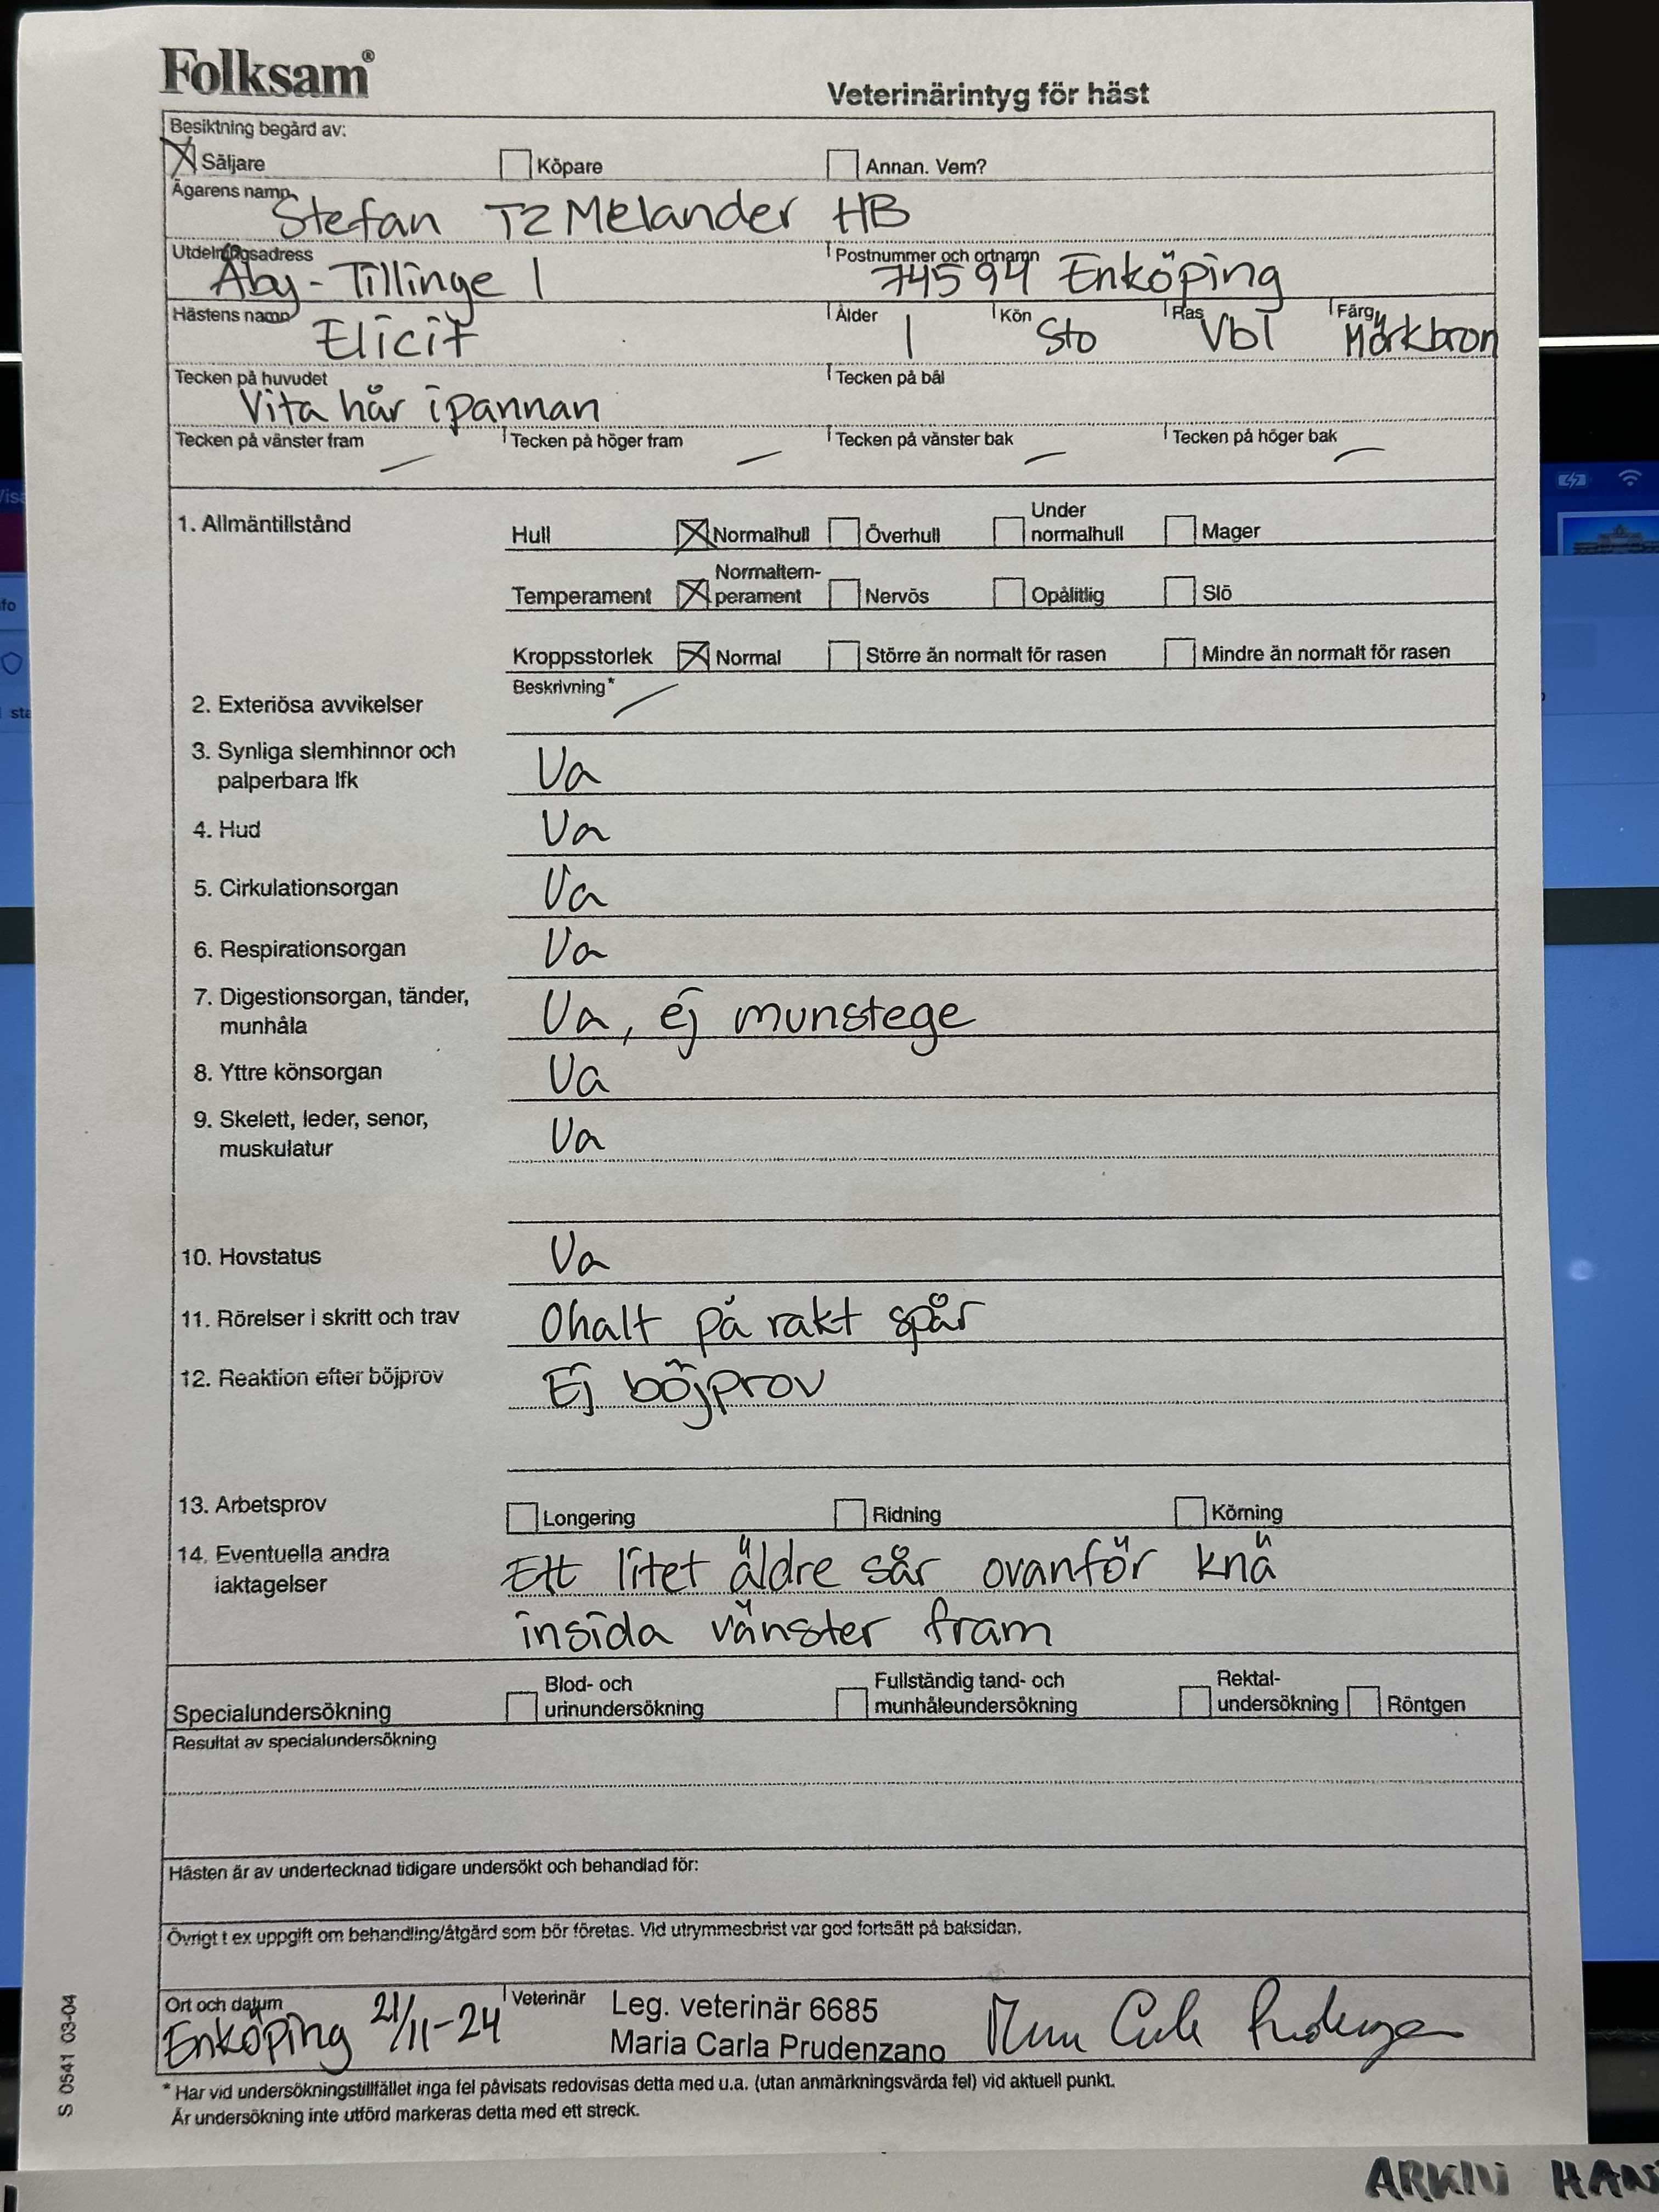 Folksam®
Veterinärintyg för häst
Besiktning begärd av:
Säljare Köpare Annan. Vem?
Ägarens namn
Stefan TZ Melander HB
Utdelningsadress Postnummer och ortnamn
Åby-Tillinge 1 74594 Enköping
Hästens namn Ålder Kön Ras Färg
Elicit 1 Sto Vbl Mörkbron
Tecken på huvudet Tecken på bål
Vita hår i pannan
Tecken på vänster fram Tecken på höger fram Tecken på vänster bak Tecken på höger bak
1. Allmäntillstånd
Hull Normalhull Överhull Under normalhull Mager
Temperament Normaltemperament Nervös Opålitlig Slö
Kroppsstorlek Normal Större än normalt för rasen Mindre än normalt för rasen
Beskrivning*
2. Exteriösa avvikelser
3. Synliga slemhinnor och
palperbara lfk Ua
4. Hud Ua
5. Cirkulationsorgan Ua
6. Respirationsorgan Ua
7. Digestionsorgan, tänder,
munhåla Ua, ej munstege
8. Yttre könsorgan Ua
9. Skelett, leder, senor,
muskulatur Ua
10. Hovstatus Ua
11. Rörelser i skritt och trav Ohalt på rakt spår
12. Reaktion efter böjprov Ej böjprov
13. Arbetsprov Longering Ridning Körning
14. Eventuella andra
iaktagelser Ett litet äldre sår ovanför knä
insida vänster fram
Specialundersökning Blod- och urinundersökning Fullständig tand- och munhåleundersökning Rektal-undersökning Röntgen
Resultat av specialundersökning
Hästen är av undertecknad tidigare undersökt och behandlad för:
Övrigt t ex uppgift om behandling/åtgärd som bör företas. Vid utrymmesbrist var god fortsätt på baksidan.
Ort och datum Veterinär
Enköping 21/11-24
Leg. veterinär 6685
Maria Carla Prudenzano
Maria Carla Prudenzano
* Har vid undersökningstillfället inga fel påvisats redovisas detta med u.a. (utan anmärkningsvärda fel) vid aktuell punkt.
Är undersökning inte utförd markeras detta med ett streck.
S 0541 03-04
ARKIV HAN